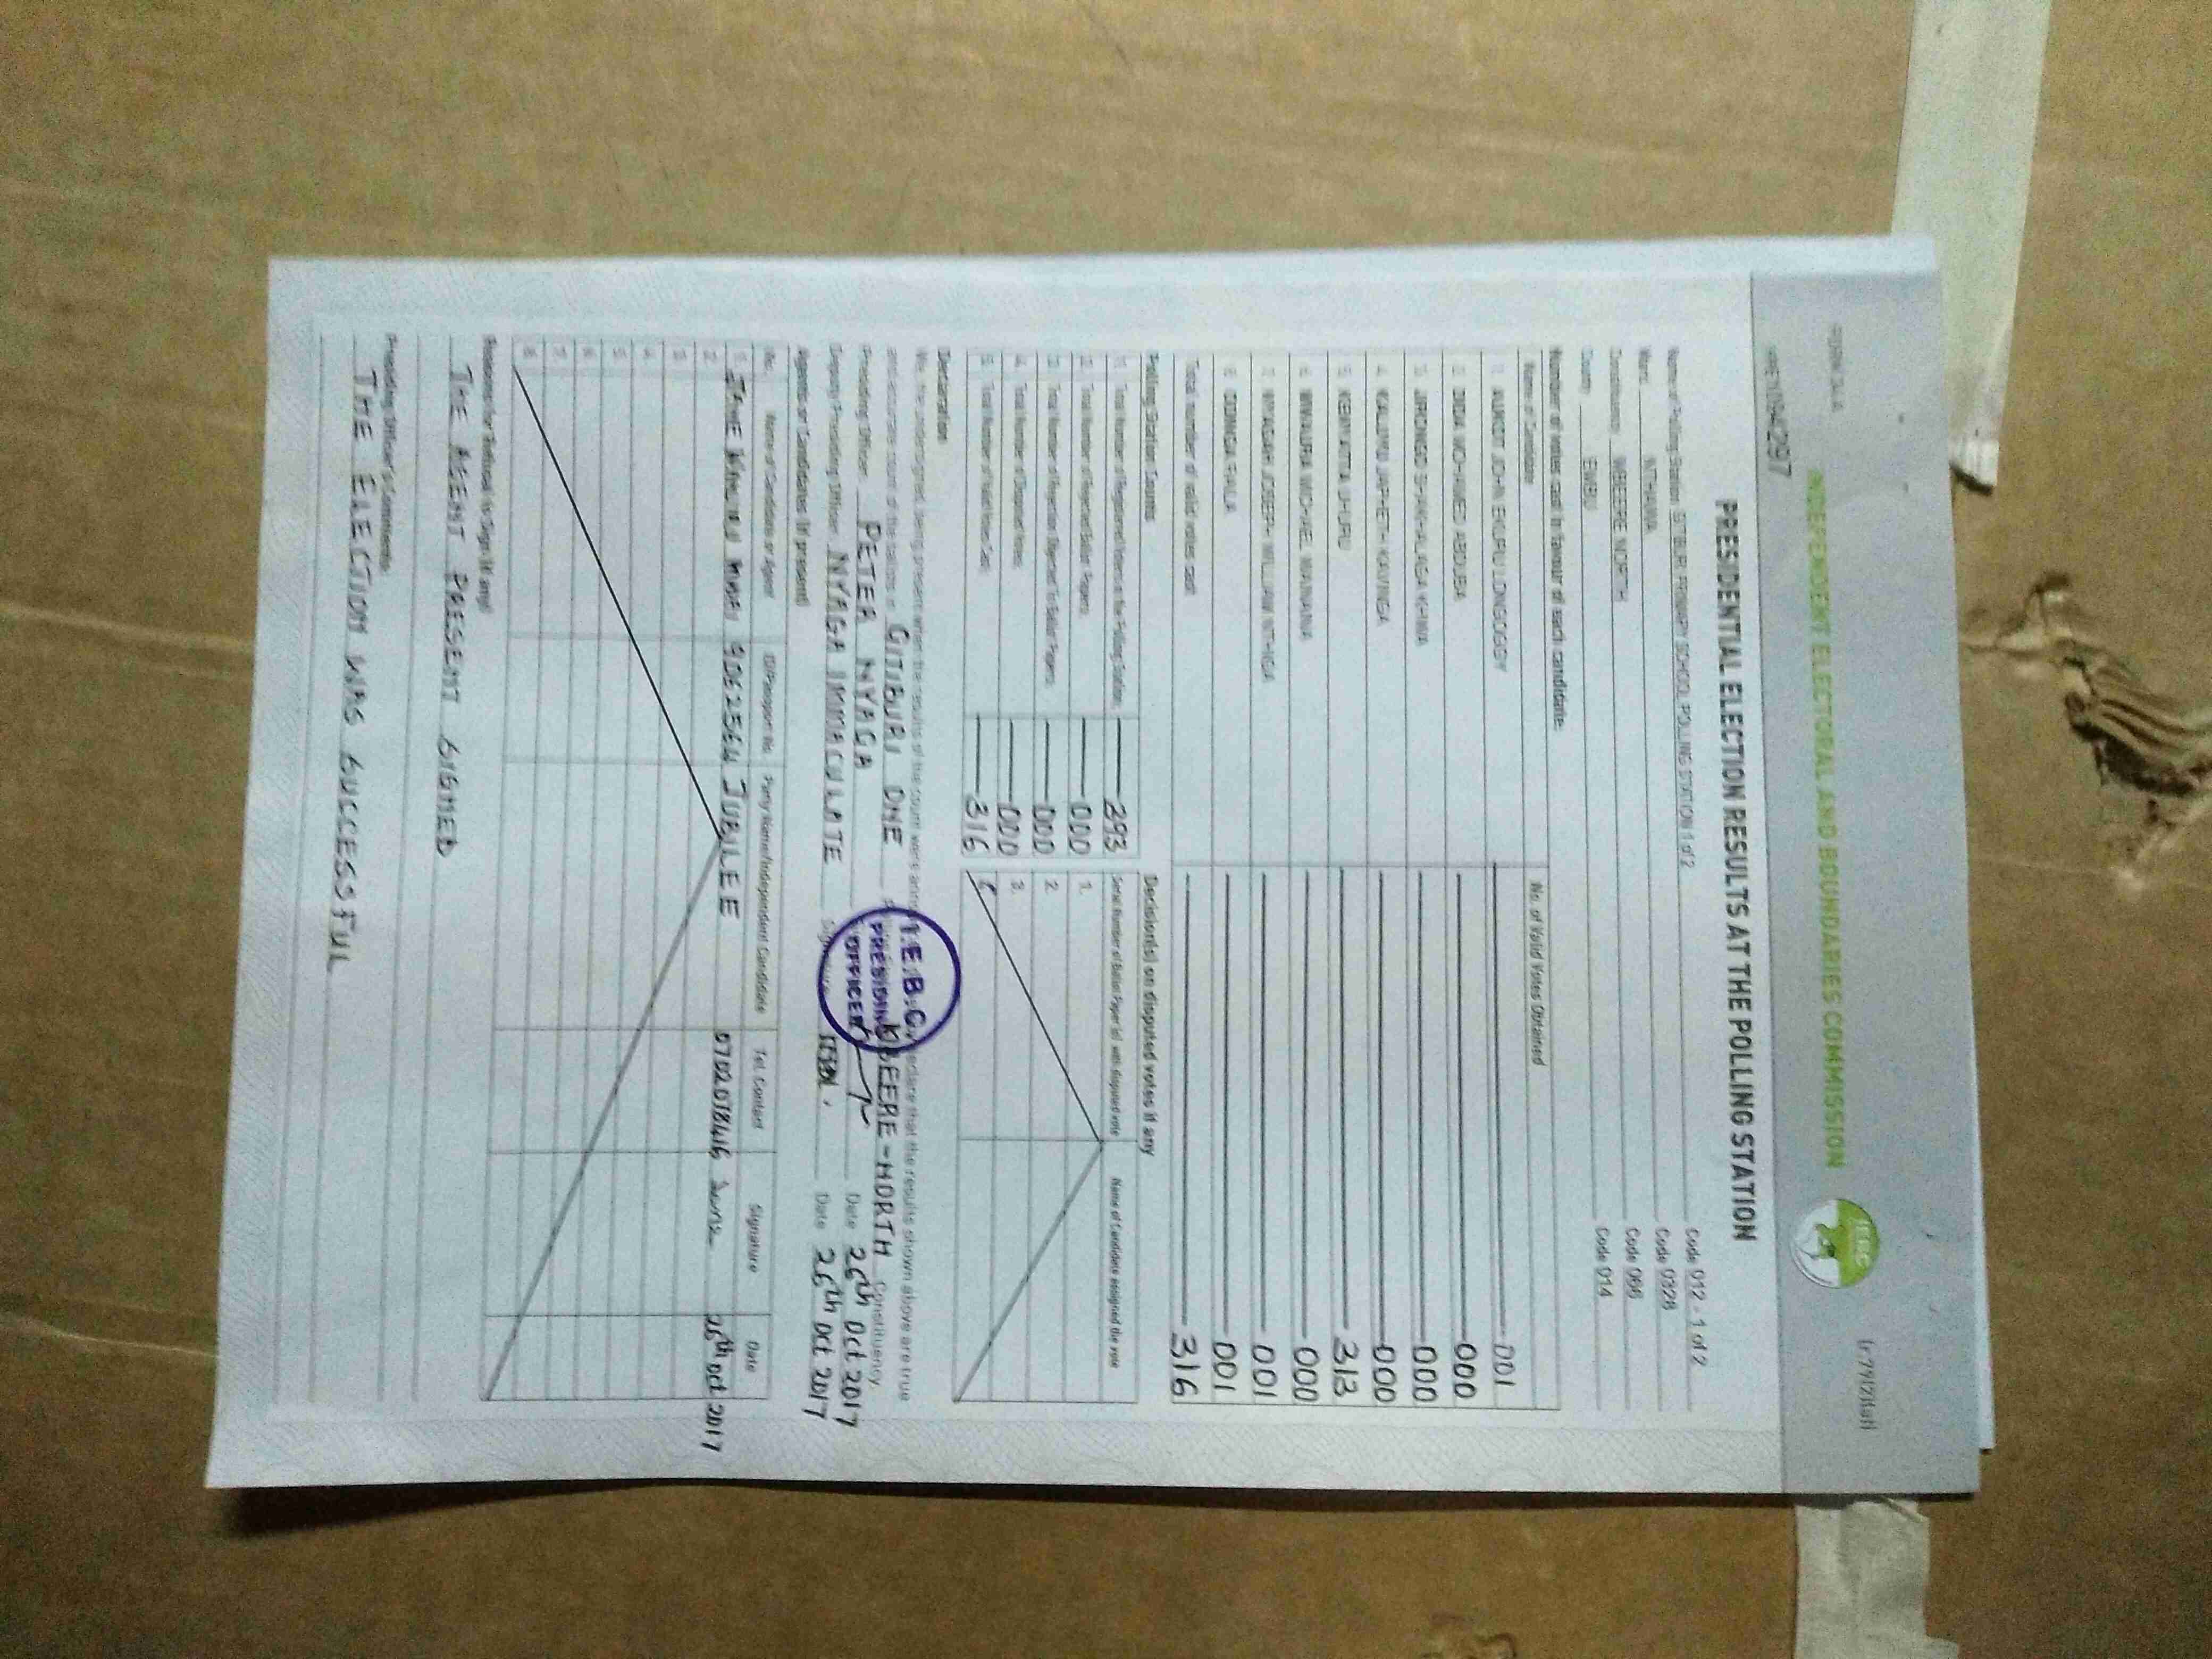 INDEPENDENT ELECTORAL AND BOUNDARIES COMMISSION
IEBC
PRESIDENTIAL ELECTION RESULTS AT THE POLLING STATION
Name of Polling Station PRIMARY SCHOOL POLLING STATION 1 of 2 Code 012 - 1 of 2
Ward NTHAWA Code 0328
Constituency MBEERE NORTH Code 066
County EMBU Code 014
Number of votes cast in favour of each candidate:
Name of Candidate No. of Valid Votes Obtained
1. AUKOT JOHN EKURU LONGOGGY 001
2. DIDA MOHAMED ABDUBA 000
3. JIRONGO SHAKHALAGA KHWA 000
4. KALUYU JAPHETH KAVINGA 000
5. KENYATTA UHURU 313
6. MWAURA MICHAEL WAINAINA 000
7. NYAGAH JOSEPH WILLIAM NTHIGA 001
8. ODINGA RAILA 001
Total number of valid votes cast 316
Polling Station Counts
1. Total Number of Registered Voters in the Polling Station 393
2. Total Number of Rejected Ballot Papers 000
3. Total Number of Rejection Objected To Ballot Papers 000
4. Total Number of Disputed Votes 000
5. Total Number of Valid Votes Cast 316
Decision(s) on disputed votes if any
Serial Number of Ballot Paper (s) with disputed vote Name of Candidate assigned the vote
1.
2.
3.
Declaration
We, the undersigned, being present when the results of the count were declare that the results shown above are true
and accurate count of the ballots in GITIBURI ONE MBEERE-NORTH Constituency.
Presiding Officer PETER NYAGA Date 26th Oct 2017
Deputy Presiding Officer NYAGA IMMACULATE Date 26th Oct 2017
I.E.B.C.
PRESIDING
OFFICER
Agents or Candidates (if present)
No. Name of Candidate or Agent ID/Passport No. Party Name/Independent Candidate Tel. Contact Signature Date
1. JANE JUBILEE 26th Oct 2017
2
3
4
5
6
7
8
Reasons for Refusal to Sign (if any)
THE AGENT PRESENT SIGNED
Presiding Officer's Comments:
THE ELECTION WAS SUCCESSFUL